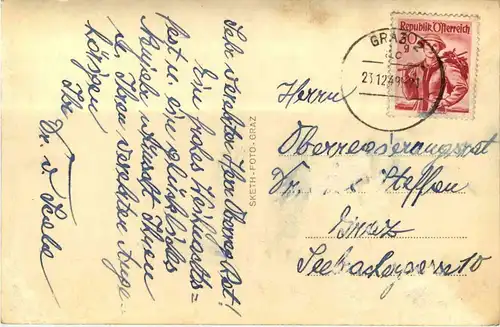 Sehr verehrter Herr Oberreg. Rat!
Ein frohes Weihnachts=
fest u. ein glückliches
Neujahr wünscht Ihnen
u. Ihren verehrten Ange-
hörigen
Ihr
Dr. v.
SKETH-FOTO-GRAZ
Republik Österreich
GRAZ
23.12.49
Herrn
Oberregierungsrat
Dr. Steffen
Graz
10